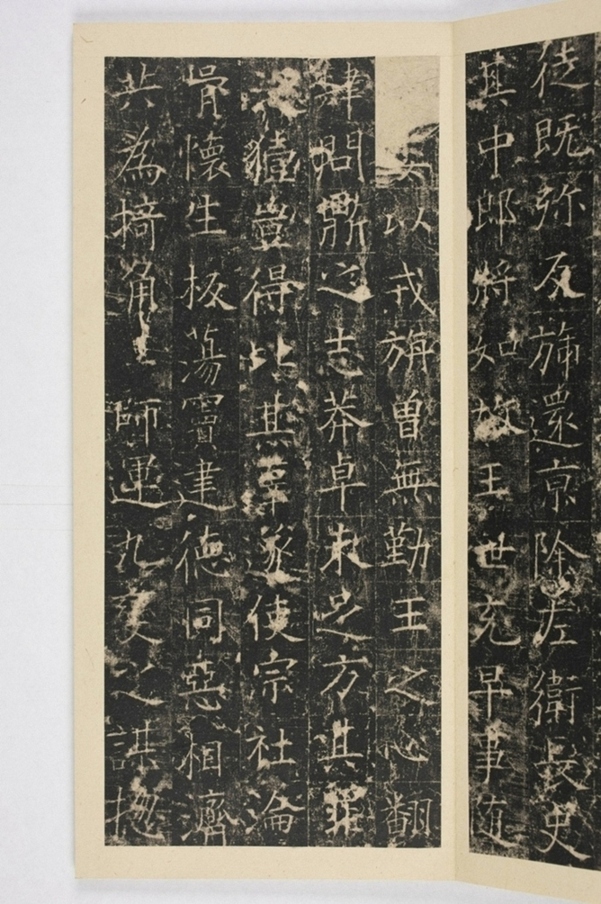 徒既弥反旆還京除左衛長史
其中郎將如故王世充早事随
以戎旃曽無勤王之心翻
肆問鼎之志莽卓未足方其罪
浞豷豈得比其辜遂使宗社淪
胥懷生板蕩竇建德同惡相濟
共為掎角王師運九變之謀摠